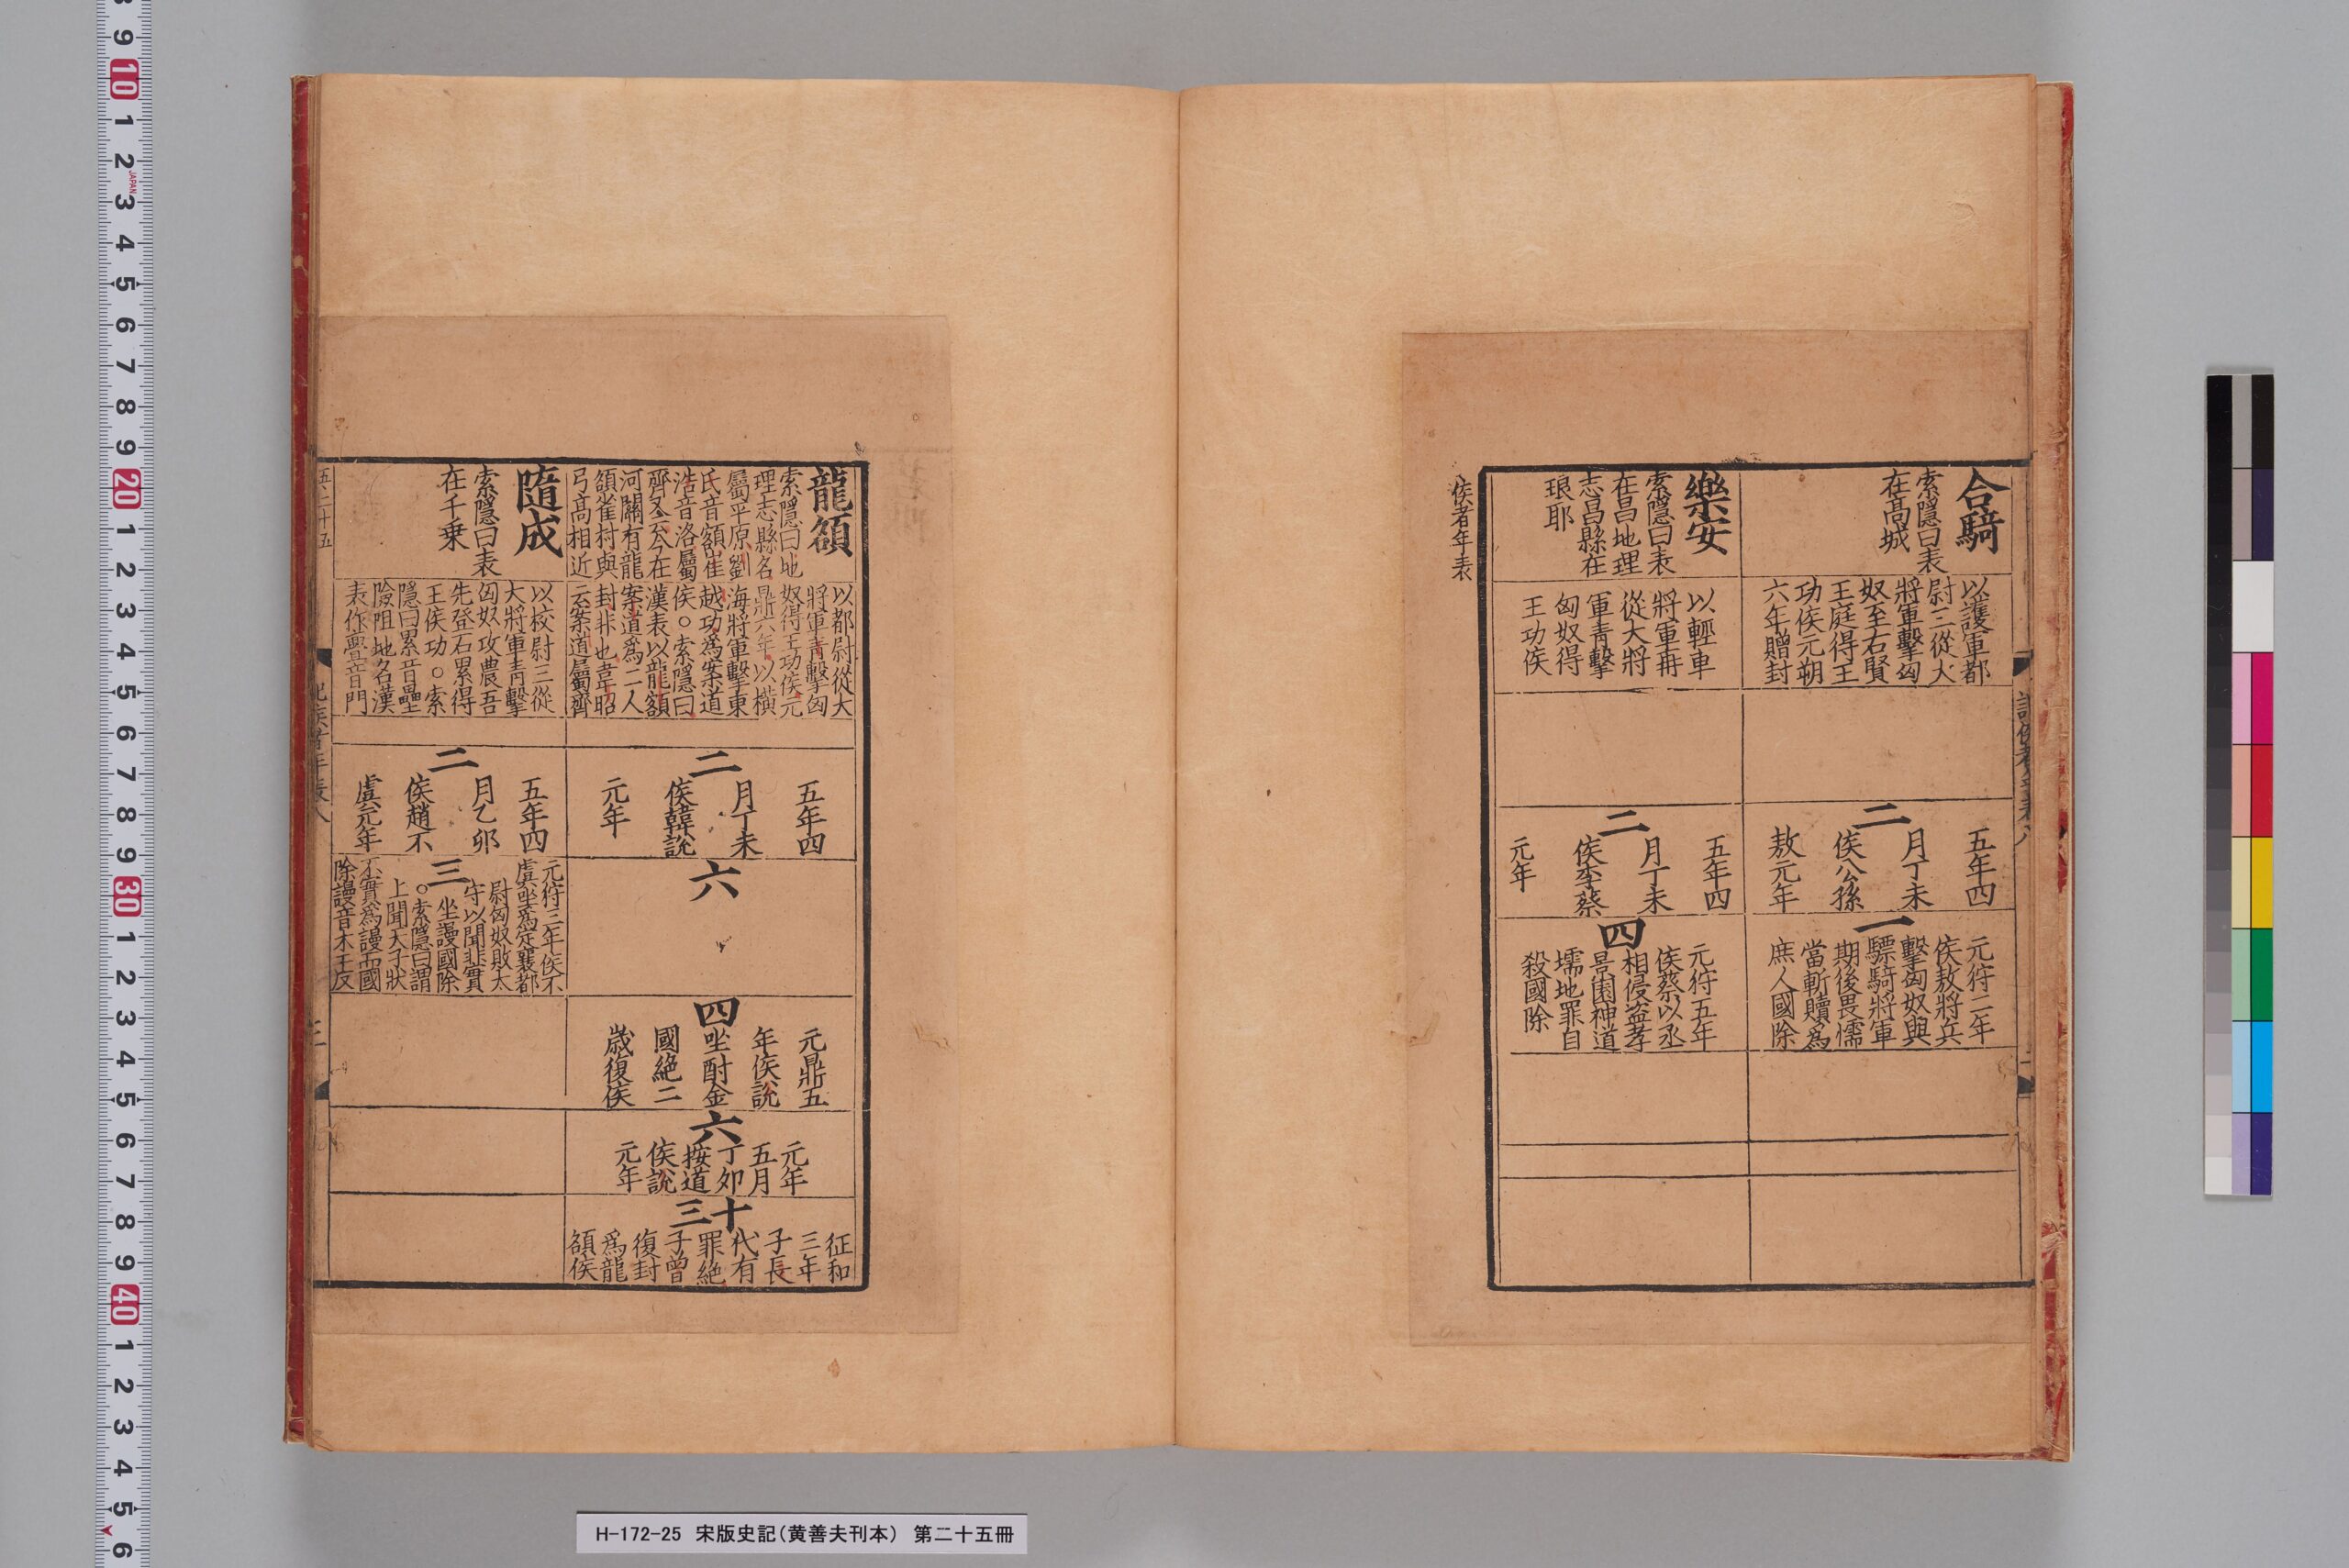 合騎
索隱曰表
在髙城
以護軍都
尉三從大
將軍擊匈
奴至右賢
王庭得王
功侯元朔
六年贈封
二
五年四
月丁未
侯公孫
敖元年
一
元狩二年
侯敖將兵
擊匈奴與
驃騎將軍
期後畏懦
當斬贖爲
庶人國除
樂安
索隱曰表
在昌地理
志昌縣在
琅耶
以輕車
將軍再
從大將
軍青擊
匈奴得
王功侯
二
五年四
月丁未
侯李蔡
元年
四
元狩五年
侯蔡以丞
相侵盗孝
景園神道
壖地罪自
殺國除
侯者年表
龍頟
索隱曰地
理志縣名
屬平原劉
氏音額崔
浩音洛屬
齊又云今在
河關有龍
頟雀村與
弓髙相近
以都尉從大
將軍青擊匈
奴得王功侯元
鼎六年以横
海將軍擊東
越功爲案道
侯○索隱曰
漢表以龍額
案道爲二人
封非也韋昭
云案道屬齊
二
五年四
月丁未
侯韓說
元年
六
四
元鼎五
年侯說
坐酎金
國絶二
歲復侯
六
元年
五月
丁卯
按道
侯說
元年
十三
征和
三年
子長
代有
罪絶
子曾
復封
爲龍
頟侯
隨成
索隱曰表
在千乗
以校尉三從
大將軍青擊
匈奴攻農吾
先登石累得
王侯功○索
隱曰累音壘
險阻地名漢
表作壘音門
二
五年四
月乙卯
侯趙不
虞元年
三
元狩三年侯不
虞坐爲定襄都
尉匈奴敗太
守以聞非實
坐謾國除
○索隱曰謂
上聞天子狀
不實爲謾而國
除謾音木干反
五二十五
H-172-25 宋版史記(黄善夫刊本) 第二十五冊